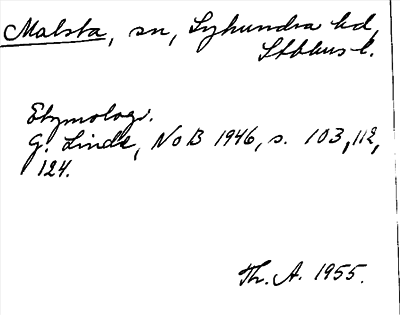 Malsta, sn, Lyhundra hd,
Sthlms l.
Etymologi.
G. Linde, NoB 1946, s. 103, 112,
124.
Th. A. 1955.